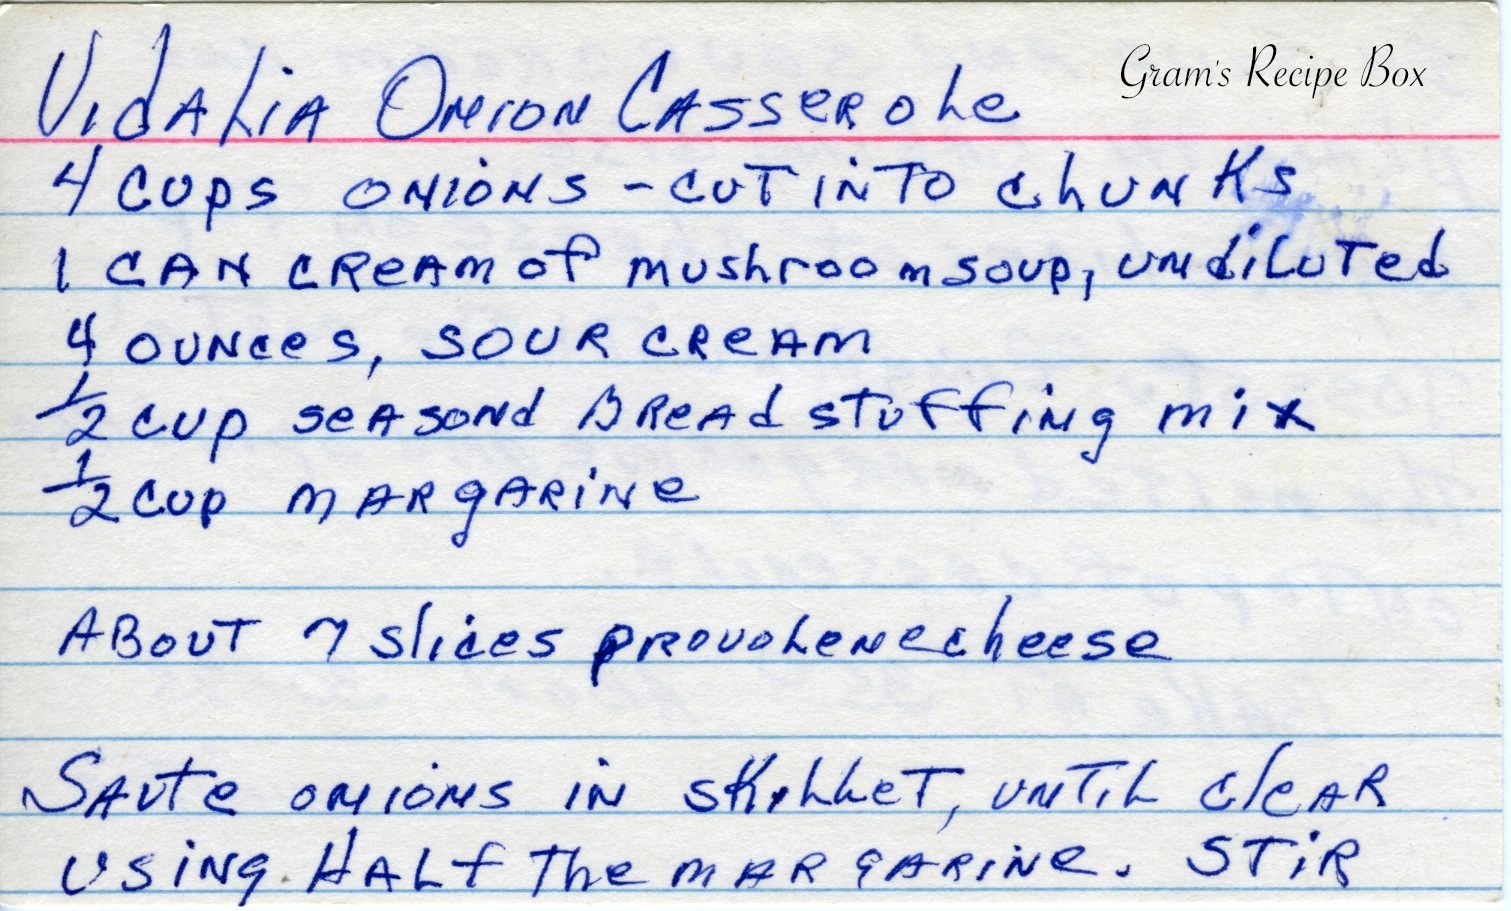 Gram's Recipe Box
Vidalia Onion Casserole
4 cups onions - cut into chunks
1 can cream of mushroom soup, undiluted
4 ounces, sour cream
1/2 cup seasond Bread stuffing mix
1/2 cup margarine
About 7 slices provolene cheese
Saute onions in skillet, until clear
using Half the margarine. Stir